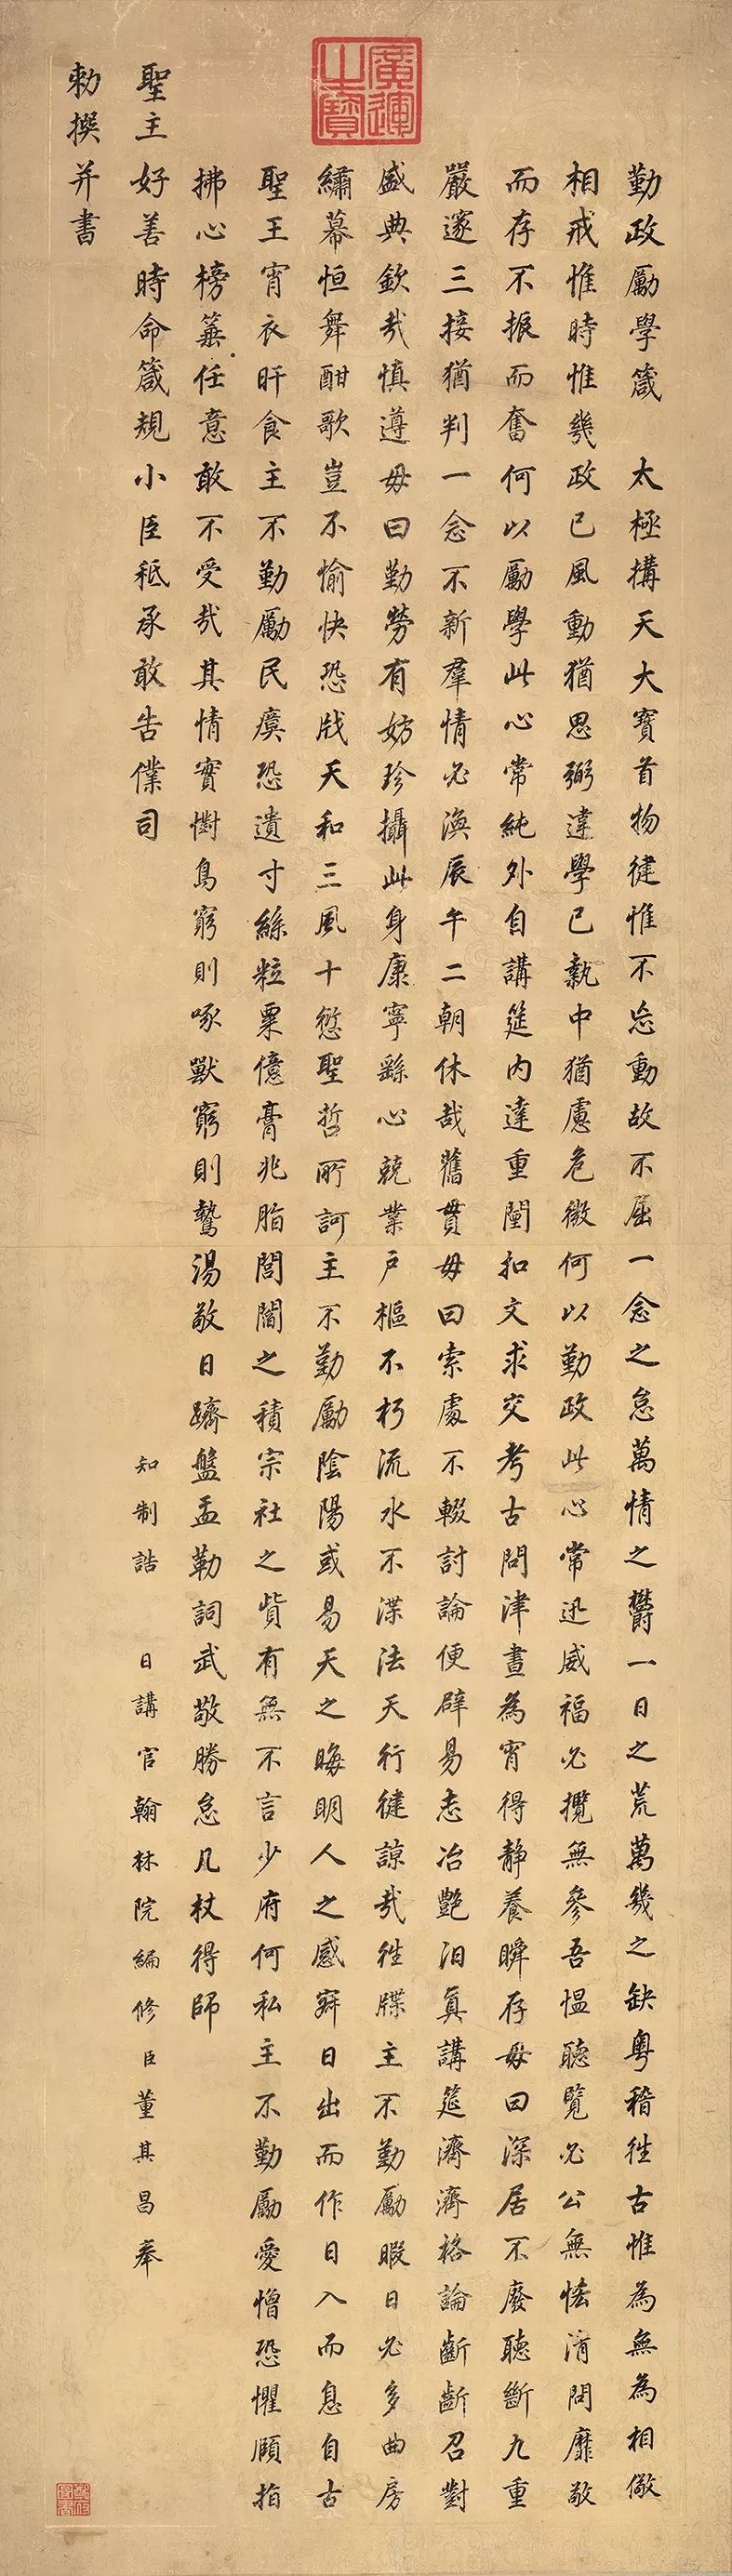 廣運之寶
勤政勵學箴　太極搆天大寶首物健惟不忘動故不屈一念之怠萬情之欝一日之荒萬幾之缺粤稽往古惟為無為相儆
相戒惟時惟幾政已風動猶思弼違學已執中猶慮危微何以勤政此心常迅威福必攬無參吾愠聽覽必公無恡清問靡敢
而存不振而奮何以勵學此心常純外自講筵內達重闉扣文求交考古問津晝為宵得静養瞬存毋曰深居不廢聽斷九重
嚴邃三接猶判一念不新羣情必渙辰午二朝休哉舊貫毋曰索處不輟討論便辟易志冶艷汨真講筵濟濟格論齗齗召對
盛典欽哉慎遵毋曰勤勞有妨珍攝此身康寧繇心兢業戶樞不朽流水不渫法天行健諒哉往牒主不勤勵暇日必多曲房
繡幕恒舞酣歌豈不愉快恐戕天和三風十愆聖哲所訶主不勤勵陰陽或易天之晦明人之感寤日出而作日入而息自古
聖王宵衣旰食主不勤勵民瘼恐遺寸絲粒粟億膏兆脂閭閻之積宗社之貲有無不言少府何私主不勤勵愛憎恐懼頤指
拂心榜箠任意敢不受哉其情實懟鳥窮則啄獸窮則鷙湯敬日躋盤盂勒詞武敬勝怠几杖得師
聖主好善時命箴規小臣秪承敢告僕司　知制誥　日講官翰林院編修臣董其昌奉
勅撰并書